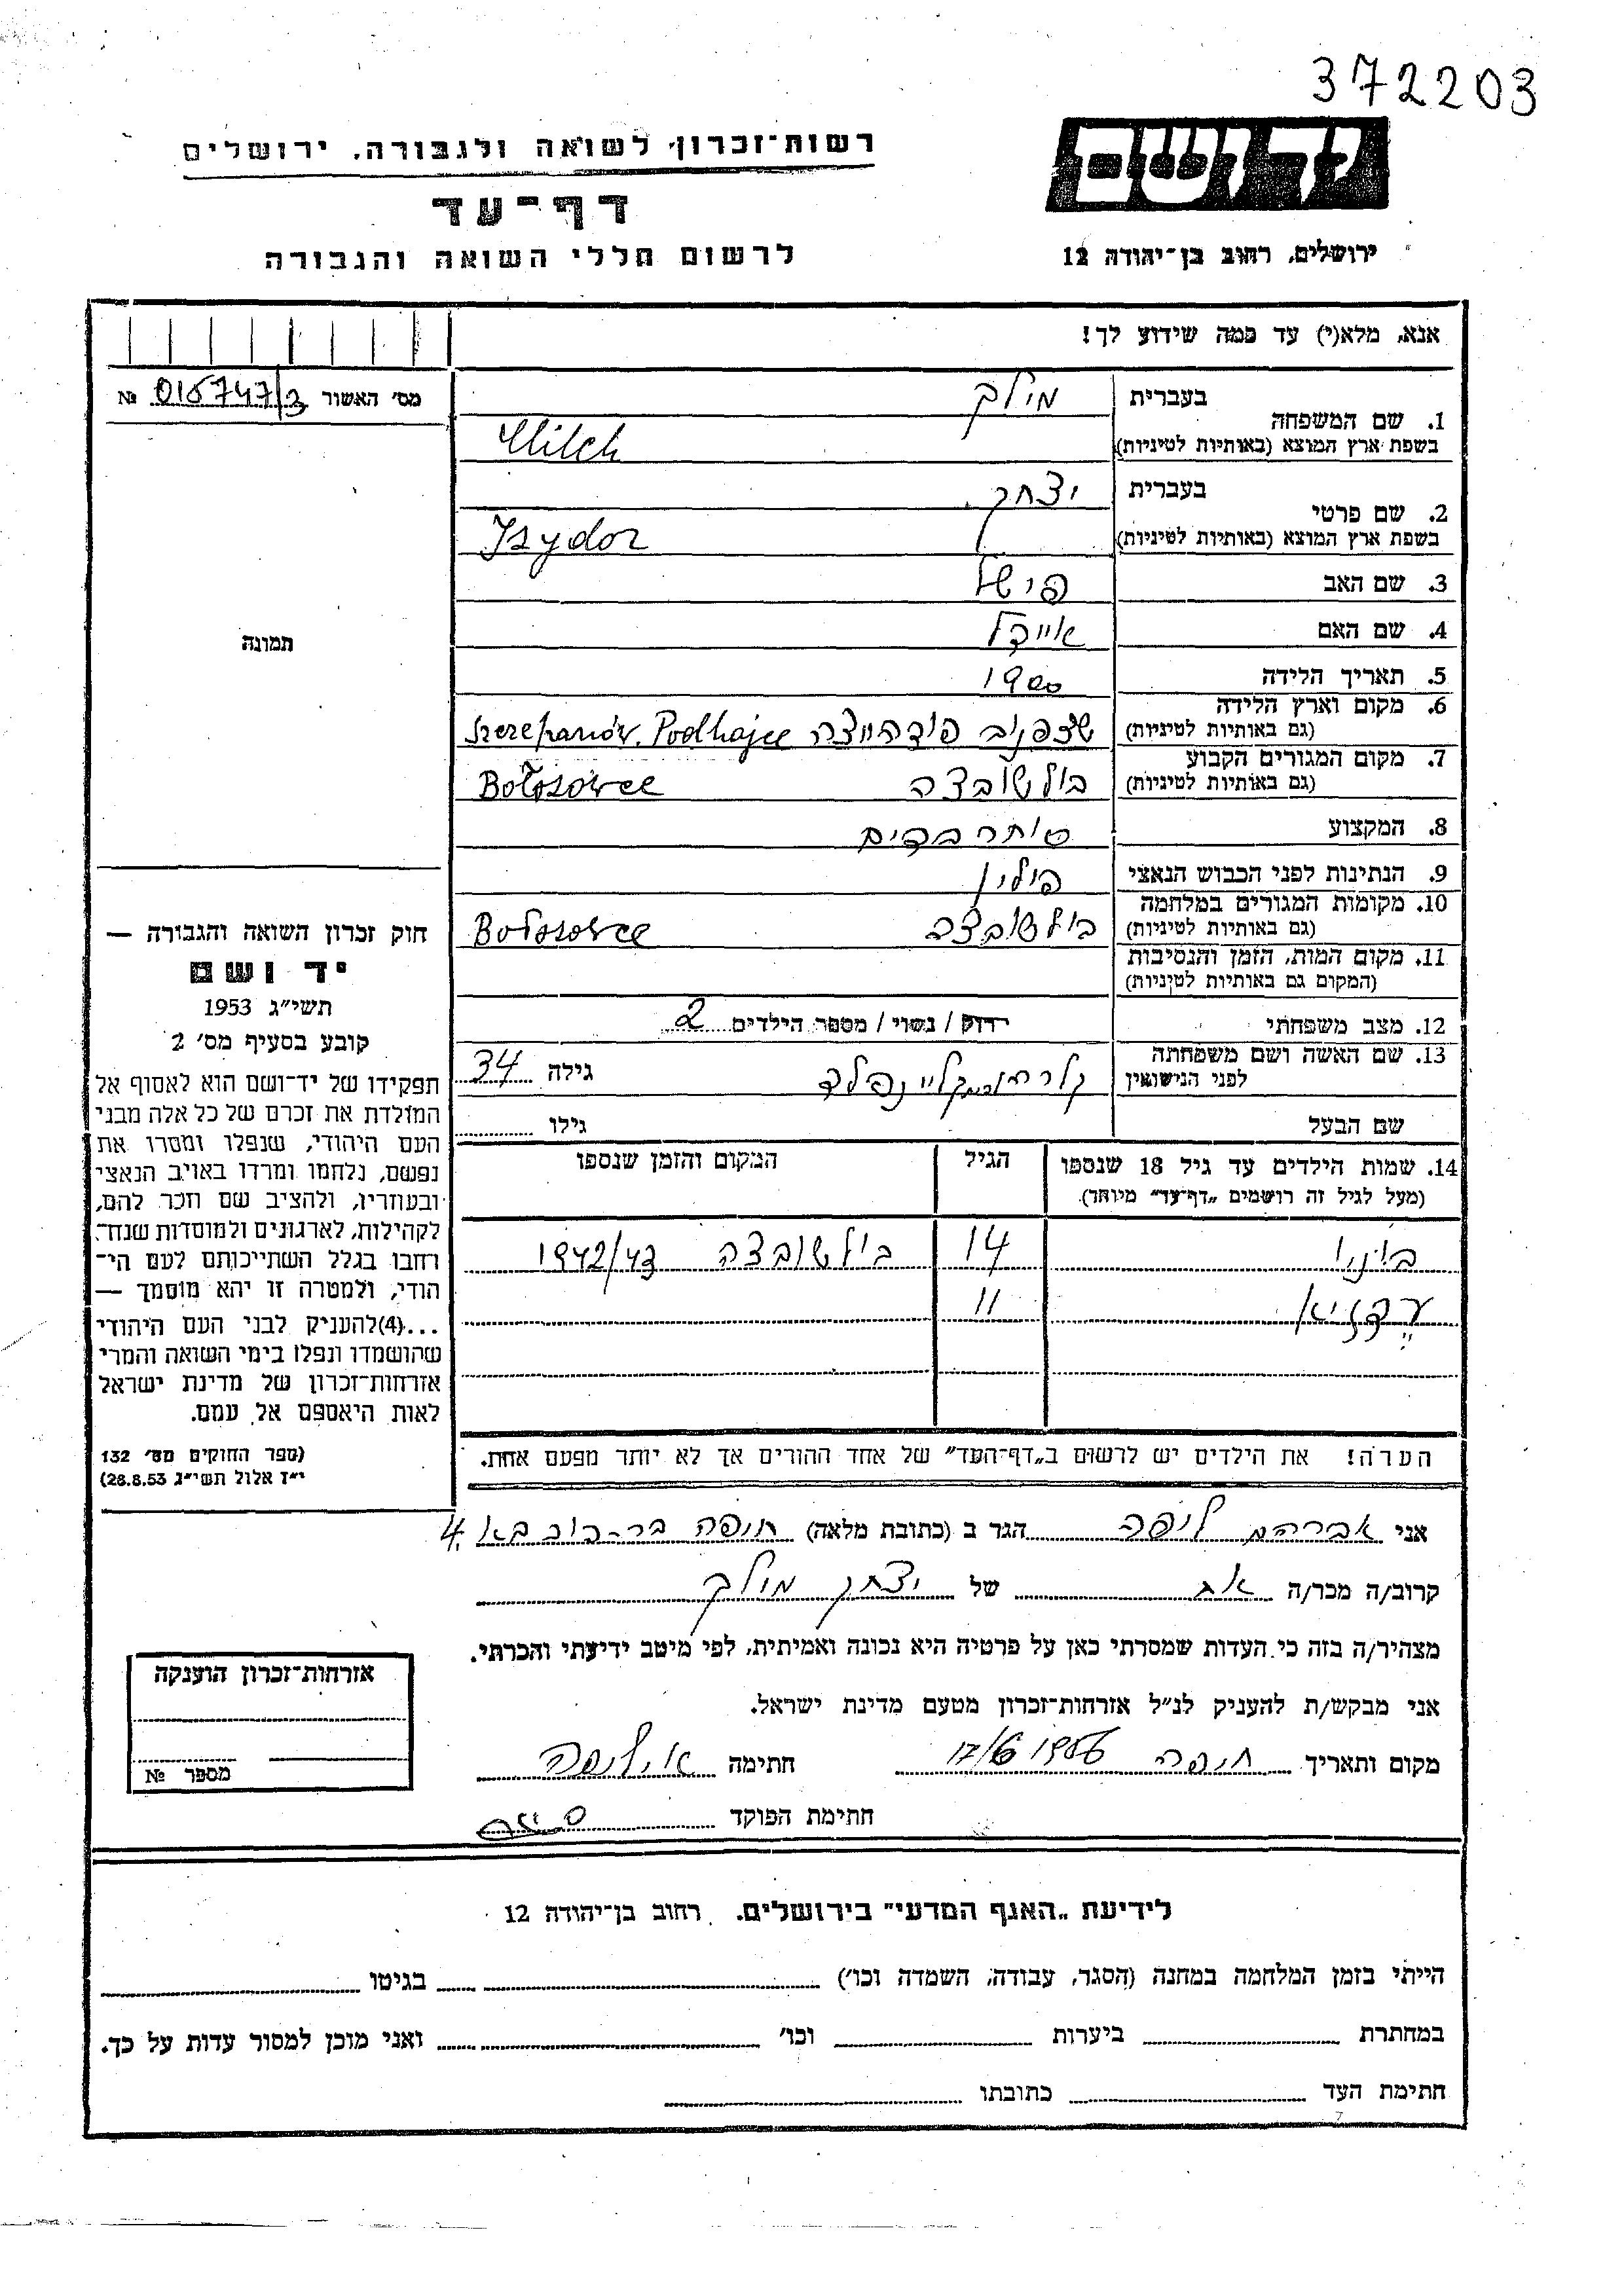 372203
יד ושם
רשות־זכרון לשואה ולגבורה, ירושלים
דף־עד
לרשום חללי השואה והגבורה
ירושלים, רחוב בן־יהודה 12
אנא, מלא(י) עד כמה שידוע לך!
מס׳ האשור 015747/3 №
1. שם המשפחה
בעברית מילך
בשפת ארץ המוצא (באותיות לטיניות) Milch
2. שם פרטי
בעברית יצחק
בשפת ארץ המוצא (באותיות לטיניות) Isydor
3. שם האב פישל
4. שם האם
5. תאריך הלידה 1900
6. מקום וארץ הלידה
(גם באותיות לטיניות) שצפנוב פודהייצה Szczepanów. Podhajce
7. מקום המגורים הקבוע
(גם באותיות לטיניות) בולשובצה Bołszowce
8. המקצוע סוחר בדים
9. הנתינות לפני הכבוש הנאצי פולין
10. מקומות המגורים במלחמה
(גם באותיות לטיניות) בולשובצה Bołszowce
11. מקום המות, הזמן והנסיבות
(המקום גם באותיות לטיניות)
12. מצב משפחתי רווק / נשוי / מספר הילדים 2
13. שם האשה ושם משפחתה
לפני הנישואין קלרה קליינפלד גילה 34
שם הבעל גילו
14. שמות הילדים עד גיל 18 שנספו הגיל המקום והזמן שנספו
(מעל לגיל זה רושמים „דף־עד" מיוחד).
14 בולשובצה 1942/43
11
הערה! את הילדים יש לרשום ב„דף־העד" של אחד ההורים אך לא יותר מפעם אחת.
תמונה
חוק זכרון השואה והגבורה —
יד ושם
תשי״ג 1953
קובע בסעיף מס׳ 2
תפקידו של יד־ושם הוא לאסוף אל
המולדת את זכרם של כל אלה מבני
העם היהודי, שנפלו ומסרו את
נפשם, נלחמו ומרדו באויב הנאצי
ובעוזריו, ולהציב שם וזכר להם,
לקהילות, לארגונים ולמוסדות שנח־
רחבו בגלל השתייכותם לעם הי־
הודי, ולמטרה זו יהא מוסמך —
...(4)להעניק לבני העם היהודי
שהושמדו ונפלו בימי השואה והמרי
אזרחות־זכרון של מדינת ישראל
לאות היאספם אל עמם.
(ספר החוקים מס׳ 132
י״ז אלול תשי״ג 28.8.53)
אני אברהם ליפה הגר ב (כתובת מלאה) חיפה בר־כוכבא 4
קרוב/ה מכר/ה אח של יצחק מילך
מצהיר/ה בזה כי העדות שמסרתי כאן על פרטיה היא נכונה ואמיתית, לפי מיטב ידיעתי והכרתי.
אני מבקש/ת להעניק לנ״ל אזרחות־זכרון מטעם מדינת ישראל.
מקום ותאריך חיפה 17/6 1956 חתימה א. ליפה
חתימת הפוקד
אזרחות־זכרון הוענקה
מספר №
לידיעת „האגף המדעי" בירושלים. רחוב בן־יהודה 12
הייתי בזמן המלחמה במחנה (הסגר, עבודה, השמדה וכו׳) בגיטו
במחתרת ביערות וכו׳ ואני מוכן למסור עדות על כך.
חתימת העד כתובתו